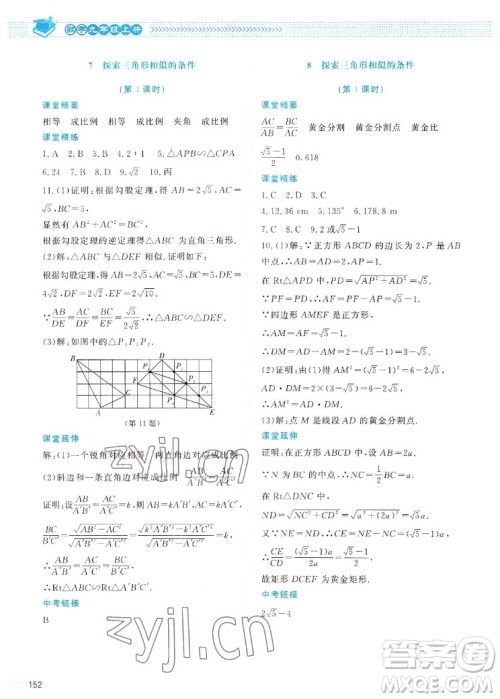 数学九年级上册
7 探索三角形相似的条件
(第 3 课时)
课堂精要
相等 成比例 相等 成比例 夹角 成比例
课堂精练
1. A 2. B 3. C 4. 2∶1 5. △APB∽△CPA
6. 24 7. B 8. D 9. √2 10. D
11. (1)证明:根据勾股定理,得 AB=2√5,AC=
√5,BC=5.
显然有 AB²+AC²=BC²,
根据勾股定理的逆定理得△ABC 为直角三角形.
(2)解:△ABC 与△DEF 相似.证明如下:
根据勾股定理,得 AB=2√5,AC=√5,BC=5,DE=
4√2,DF=2√2,EF=2√10.
∵AB/DE=AC/DF=BC/EF=√5/2√2,
∴△ABC∽△DEF.
(3)解:如图中的△P₂P₄P₅.
(第 11 题)
课堂延伸
解:(1)一个锐角对应相等 两直角边对应成比例
(2)斜边和一条直角边对应成比例
证明:设AB/A′B′=AC/A′C′=k,则 AB=kA′B′,AC=kA′C′.
BC/B′C′=√(AB²−AC²)/√(A′B′²−A′C′²)=√(k²A′B′²−k²A′C′²)/√(A′B′²−A′C′²)=k,
∴AB/A′B′=AC/A′C′=BC/B′C′=k.
∴Rt△ABC∽Rt△A′B′C′.
中考链接
B
8 探索三角形相似的条件
(第 4 课时)
课堂精要
AC/AB=BC/AC 黄金分割 黄金分割点 黄金比
(√5−1)/2 0.618
课堂精练
1. C 2. D 3. C
4. 12.36 cm 5. √5−1 6. 178.8 m
7. C 8. C 9. 2或√5−1
10. (1)解:∵正方形 ABCD 的边长为 2,P 是 AB
中点,∴AP=1.
在 Rt△APD 中,PD=√(AP²+AD²)=√5.
∵PF=PD=√5,
∴AF=√5−1.
∵四边形 AMEF 是正方形,
∴AM=AF=√5−1.
∴DM=AD−AM=2−(√5−1)=3−√5.
(2)证明:∵AM²=(√5−1)²=6−2√5,
AD·DM=2×(3−√5)=6−2√5,
∴AM²=AD·DM.
(3)解:点 M 是线段 AD 的黄金分割点.
课堂延伸
证明:在正方形 ABCD 中,设 AB=2a,
∵N 为 BC 的中点,∴NC=1/2BC=a.
在 Rt△DNC 中,
ND=√(NC²+CD²)=√(a²+(2a)²)=√5a.
又∵NE=ND,∴CE=NE−NC=(√5−1)a.
∴CE/CD=(√5−1)a/2a=(√5−1)/2.
故矩形 DCEF 为黄金矩形.
中考链接
2√5−4
152
zyjl.cn
zyjl.cn
答案圈
MXQE.COM